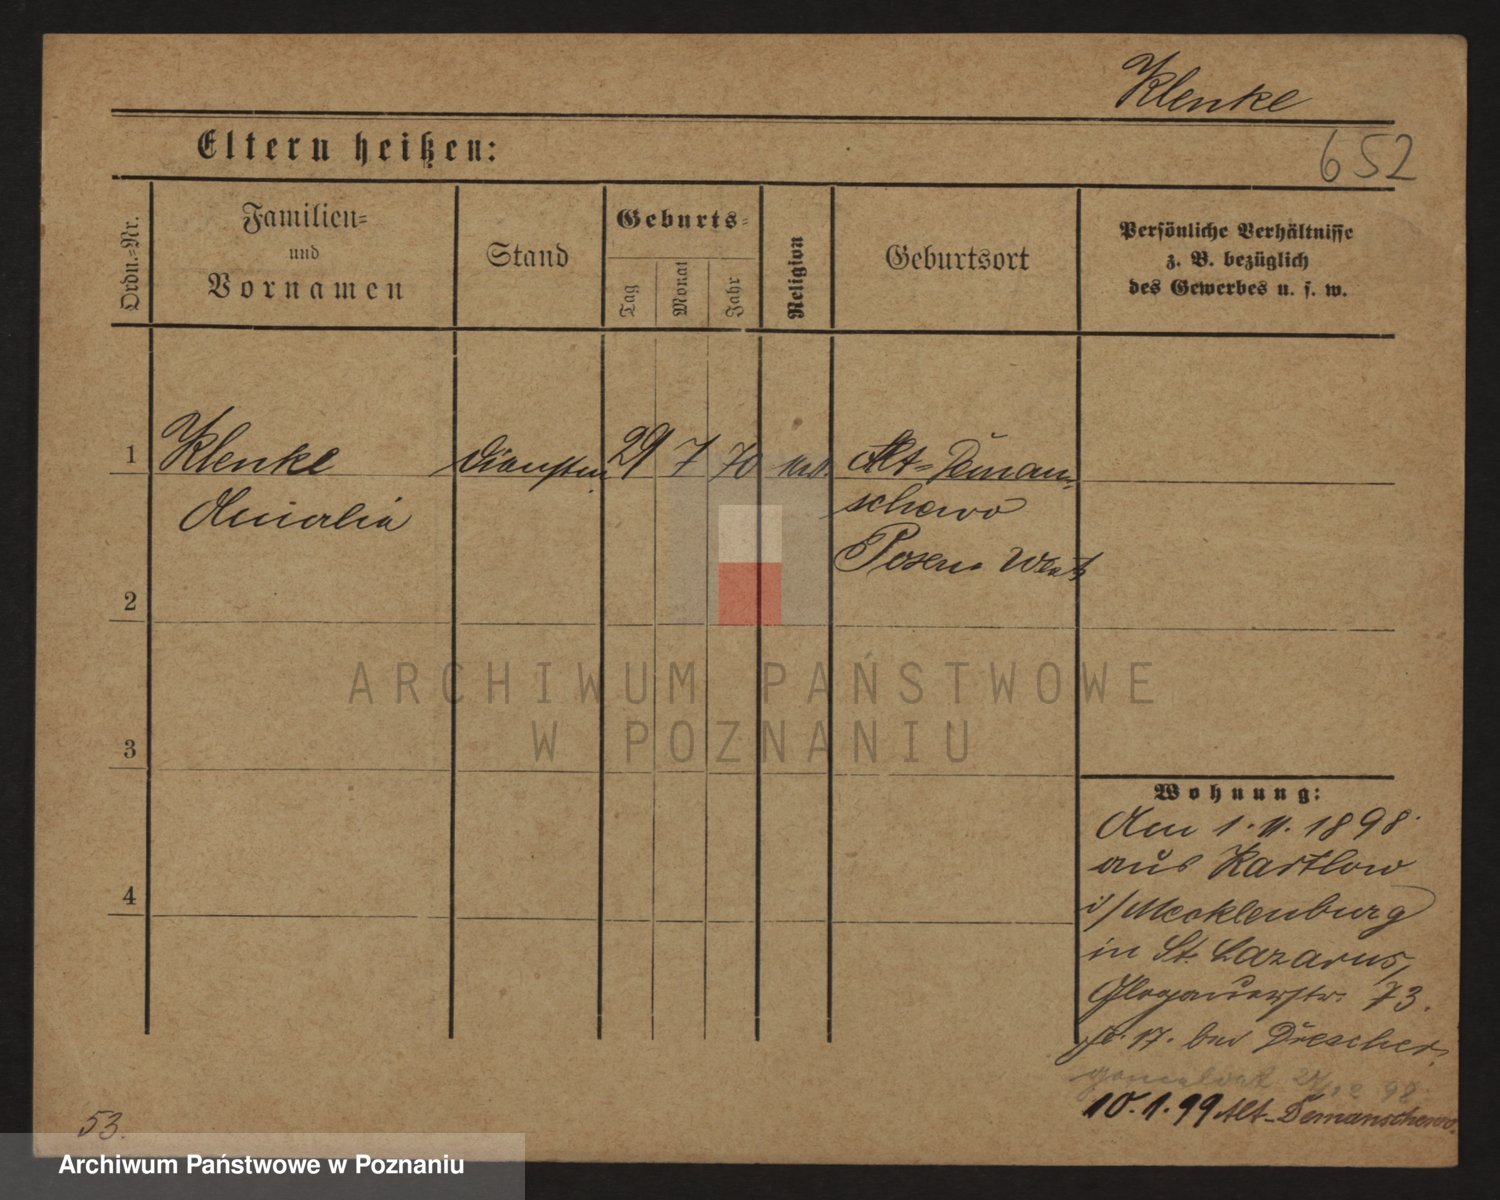 Klenke
652
Eltern heißen:
Ordn.=Nr.
Familien=
und
Vornamen
Stand
Geburts=
Tag
Monat
Jahr
Religion
Geburtsort
Persönliche Verhältnisse
z. B. bezüglich
des Gewerbes u. s. w.
1
Klenke
29 7 70
Alt=Deman=
Amalia
schewo
Posen West
2
3
4
ARCHIWUM PAŃSTWOWE
W POZNANIU
Wohnung:
Am 1. 11. 1898
aus Kartlow
i/Mecklenburg
in St. Lazarus,
Glogauerstr. 73.
17. bei Drescher.
gemeldet 98
10.1.99 Alt-Demanschewo.
53.
Archiwum Państwowe w Poznaniu